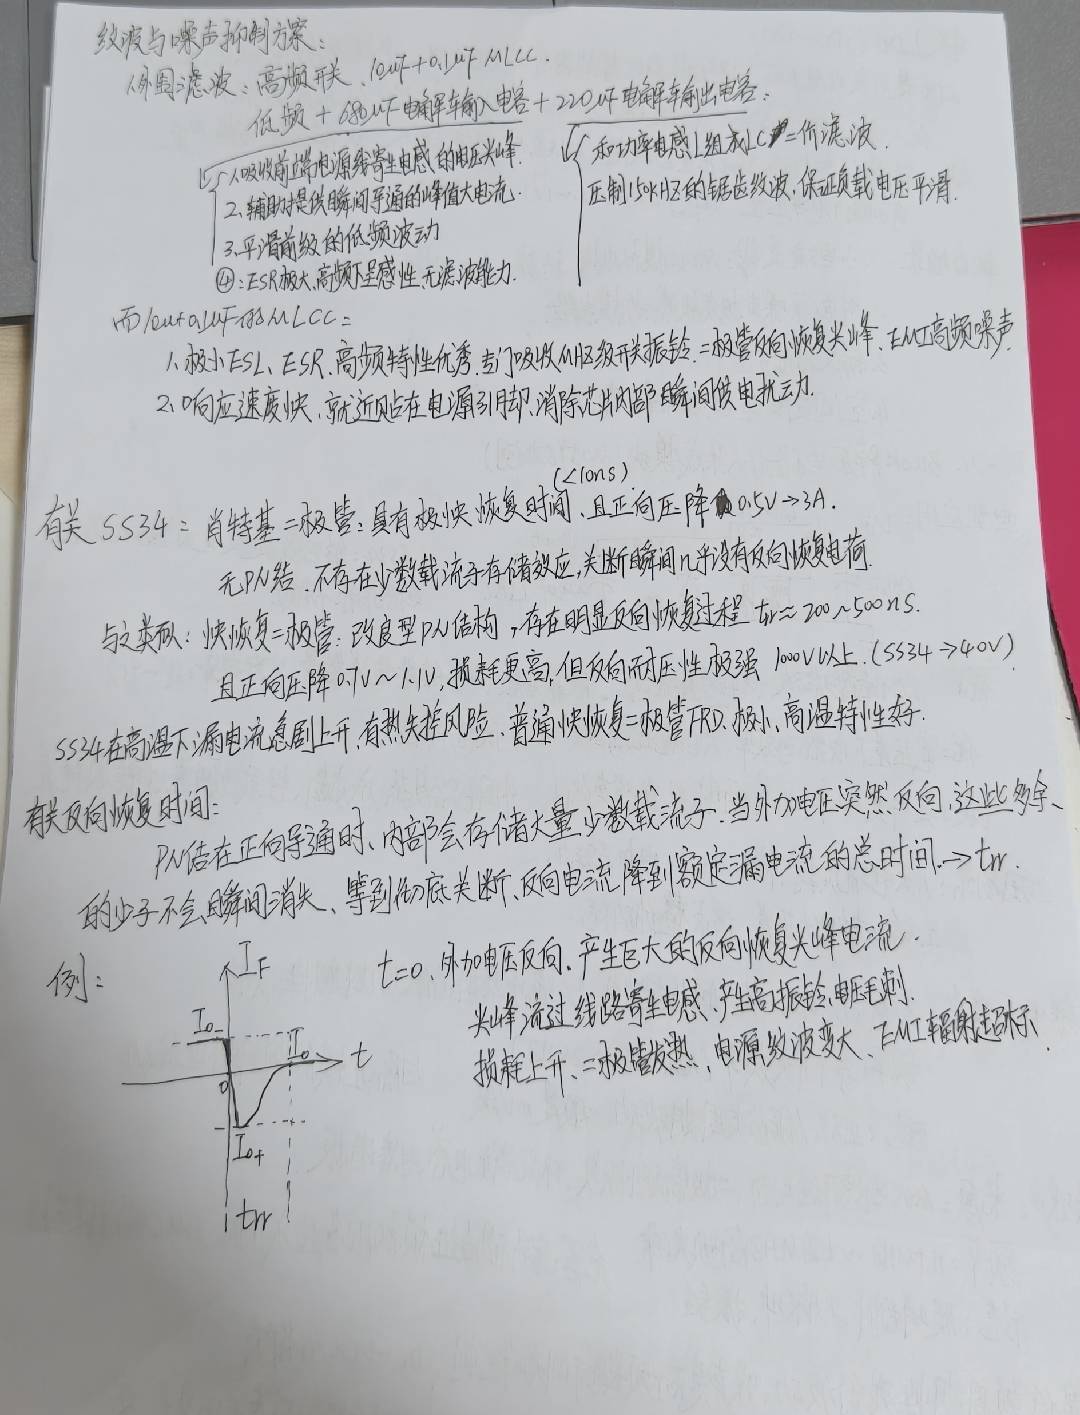 纹波与噪声抑制方案:
外围滤波: 高频开关、10uF+0.1uF MLCC.
低频+680uF电解车输入电容+220uF电解车输出电容:
1.吸收前端电源线寄生电感的电压尖峰.
2、辅助提供瞬间导通的峰值大电流.
3.平滑前级的低频波动
④:ESR极大,高频下呈感性,无滤波能力.
和功率电感L组成LC二阶滤波.
压制150kHZ的锯齿纹波,保证负载电压平滑.
而10u+0.1uF的MLCC:
1、极小ESL、ESR、高频特性优秀.专门吸收MHZ级开关振铃、二极管反向恢复尖峰、EMI高频噪声.
2、响应速度快、就近贴在电源引脚、消除芯片内部瞬间供电扰动.
(<10ns)
有关SS34: 肖特基二极管:具有极快恢复时间、且正向压降0.5V→3A.
无PN结、不存在少数载流子存储效应,关断瞬间几乎没有反向恢复电荷.
与之类似: 快恢复二极管: 改良型PN结构,存在明显反向恢复过程 trr≈200~500ns.
且正向压降0.7V~1.1V,损耗更高,但反向耐压性极强 1000V以上.(SS34→40V)
SS34在高温下漏电流急剧上升,有热失控风险、普通快恢复二极管FRD、极小、高温特性好.
有关反向恢复时间:
PN结在正向导通时、内部会存储大量少数载流子.当外加电压突然反向,这些多余
的少子不会瞬间消失、等到彻底关断、反向电流降到额定漏电流的总时间.→trr.
例:
IF
I0-
I0
t
0
I0+
trr
t=0、外加电压反向、产生巨大的反向恢复尖峰电流.
尖峰流过线路寄生电感、产生高频振铃、电压毛刺.
损耗上升、二极管发热,电源纹波变大、EMI辐射超标.